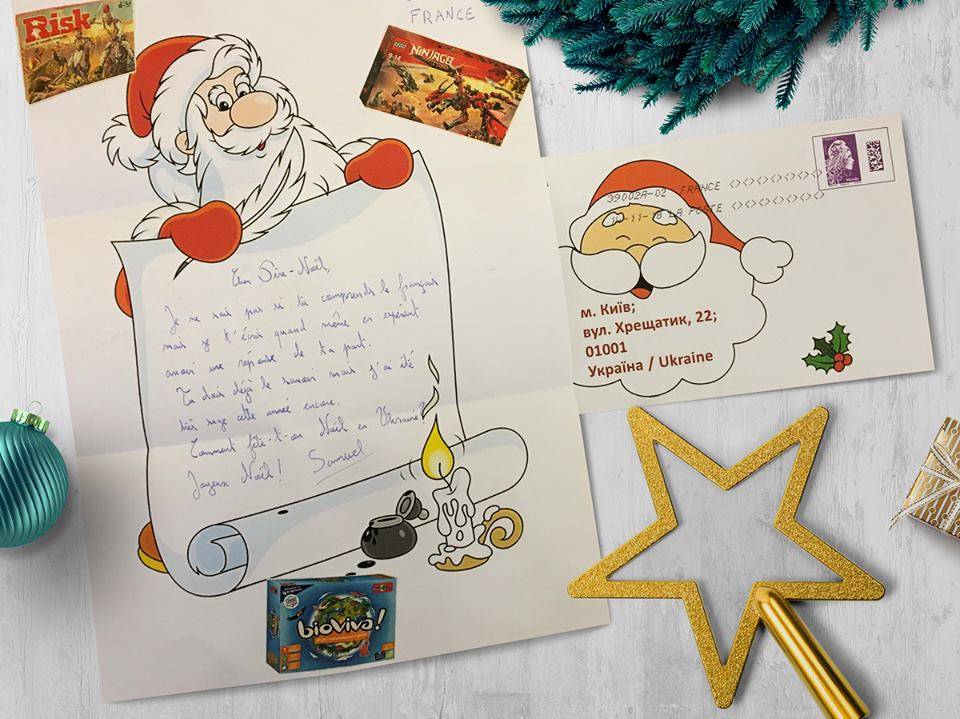 FRANCE
Risk
LEGO NINJAGO
9-14
Cher Père-Noël,
Je ne sais pas si tu comprends le français
mais je t'écris quand même en espérant
avoir une réponse de ta part.
Tu dois déjà le savoir mais j'ai été
très sage cette année encore.
Comment fête-t-on Noël en Ukraine?
Joyeux Noël! Samuel
bioViva!
39002A-02 FRANCE
11-18 LA POSTE
м. Київ;
вул. Хрещатик, 22;
01001
Україна / Ukraine